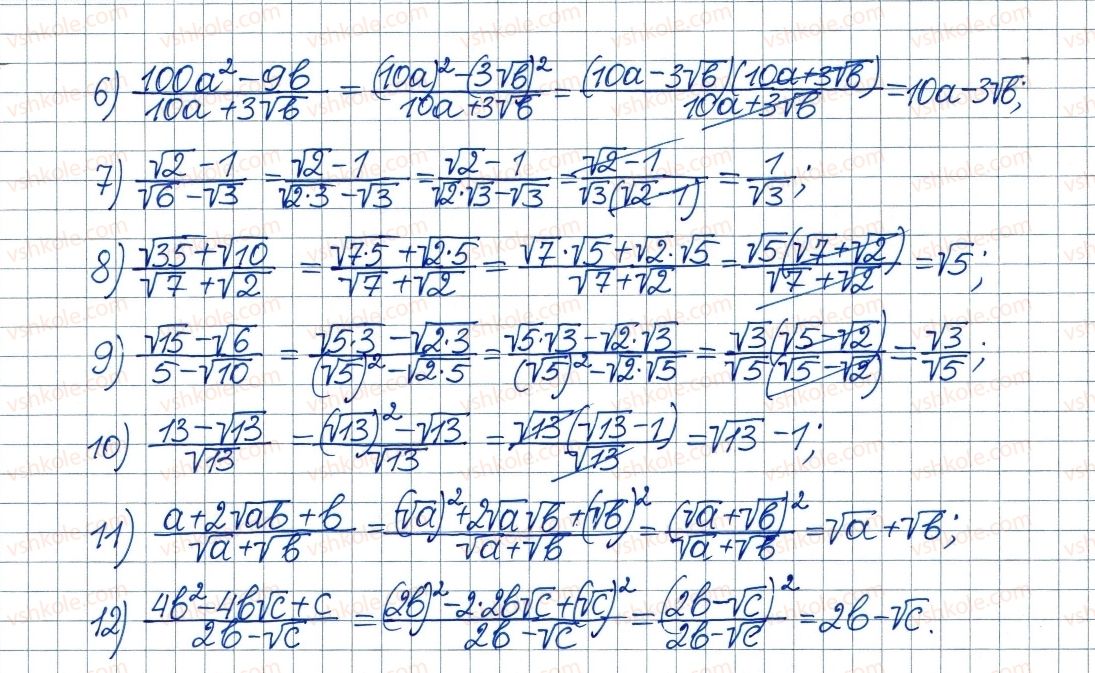 6) (100a² − 9b)/(10a + 3√b) = ((10a)² − (3√b)²)/(10a + 3√b) = ((10a − 3√b)(10a + 3√b))/(10a + 3√b) = 10a − 3√b;
7) (√2 − 1)/(√6 − √3) = (√2 − 1)/(√2·3 − √3) = (√2 − 1)/(√2·√3 − √3) = (√2 − 1)/(√3(√2 − 1)) = 1/√3;
8) (√35 + √10)/(√7 + √2) = (√7·5 + √2·5)/(√7 + √2) = (√7·√5 + √2·√5)/(√7 + √2) = (√5(√7 + √2))/(√7 + √2) = √5;
9) (√15 − √6)/(5 − √10) = (√5·3 − √2·3)/((√5)² − √2·5) = (√5·√3 − √2·√3)/((√5)² − √2·√5) = (√3(√5 − √2))/(√5(√5 − √2)) = √3/√5;
10) (13 − √13)/√13 = ((√13)² − √13)/√13 = (√13(√13 − 1))/√13 = √13 − 1;
11) (a + 2√ab + b)/(√a + √b) = ((√a)² + 2√a√b + (√b)²)/(√a + √b) = (√a + √b)²/(√a + √b) = √a + √b;
12) (4b² − 4b√c + c)/(2b − √c) = ((2b)² − 2·2b√c + (√c)²)/(2b − √c) = (2b − √c)²/(2b − √c) = 2b − √c.